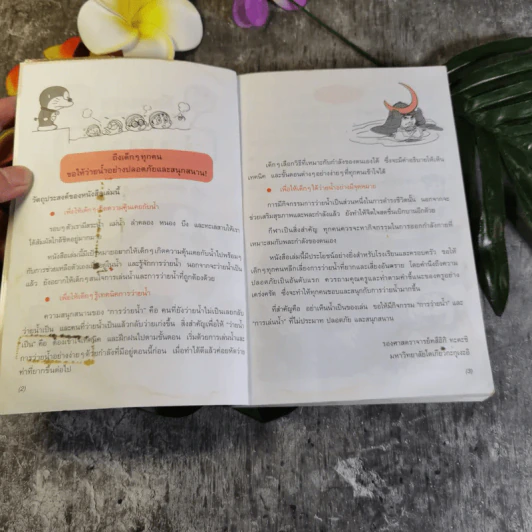 ถึงเด็กๆทุกคน
ขอให้ว่ายน้ำอย่างปลอดภัยและสนุกสนาน!
วัตถุประสงค์ของหนังสือเล่มนี้
เพื่อให้เด็กๆ คุ้นเคยกับน้ำ
รอบๆตัวเรามีสระน้ำ แม่น้ำ ลำคลอง หนอง บึง และทะเลสาบให้เรา
ได้สัมผัสใกล้ชิดอยู่มาก
หนังสือเล่มนี้มีเป้าหมายอยากให้เด็กๆเกิดความคุ้นเคยกับน้ำไปพร้อมๆ
กับการช่วยเหลือตัวเอง น้ำ และรู้จักการว่ายน้ำ นอกจากจะว่ายน้ำเป็น
แล้ว ยังอยากให้เด็กๆสนใจการเล่นน้ำและการว่ายน้ำที่ถูกต้องด้วย
เพื่อให้เด็กๆ รู้เทคนิคการว่ายน้ำ
ความสนุกสนานของ "การว่ายน้ำ" คือ คนที่ยังว่ายน้ำไม่เป็นเลยกลับ
ว่ายน้ำเป็น และคนที่ว่ายน้ำเป็นแล้วกลับว่ายเก่งขึ้น สิ่งสำคัญเพื่อให้ "ว่ายน้ำ
เป็น" คือ เทคนิค และฝึกฝนไปตามขั้นตอน เริ่มด้วยการเล่นน้ำและ
การว่ายน้ำอย่างง่ายๆด้วยกำลังที่มีอยู่ตอนนี้ก่อน เมื่อทำได้ดีแล้วค่อยหัดว่าย
ท่าที่ยากขึ้นต่อไป
(2)
เด็กๆเลือกวิธีที่เหมาะกับกำลังของตนเองได้ ซึ่งจะมีคำอธิบายให้เห็น
เทคนิค และขั้นตอนต่างๆอย่างง่ายๆที่ทุกคนเข้าใจได้
เพื่อให้เด็กๆใช้ว่ายน้ำอย่างมีจุดหมาย
การมีกิจกรรมการว่ายน้ำเป็นส่วนหนึ่งในการดำรงชีวิตนั้น นอกจากจะ
ช่วยเสริมสุขภาพและพละกำลังแล้ว ยังทำให้จิตใจสดชื่นเบิกบานอีกด้วย
กีฬาเป็นสิ่งสำคัญ ทุกคนควรจะหากิจกรรมในการออกกำลังกายที่
เหมาะสมกับพละกำลังของตนเอง
หนังสือเล่มนี้มีประโยชน์อย่างยิ่งสำหรับโรงเรียนและครอบครัว ขอให้
เด็กๆทุกคนหลีกเลี่ยงการว่ายน้ำที่ยากและเสี่ยงอันตราย โดยคำนึงถึงความ
ปลอดภัยเป็นอันดับแรก ควรถามคุณครูและทำตามคำชี้แนะของครูอย่าง
เคร่งครัด ซึ่งจะทำให้ทุกคนชอบและสนุกกับการว่ายน้ำมากขึ้น
ที่สำคัญคือ อย่าเห็นน้ำเป็นของเล่น ขอให้มีกิจกรรม "การว่ายน้ำ" และ
"การเล่นน้ำ" ที่ไม่ประมาท ปลอดภัย และสนุกสนาน
รองศาสตราจารย์
มหาวิทยาลัยโตเกียวกะกุเงอิ
(3)